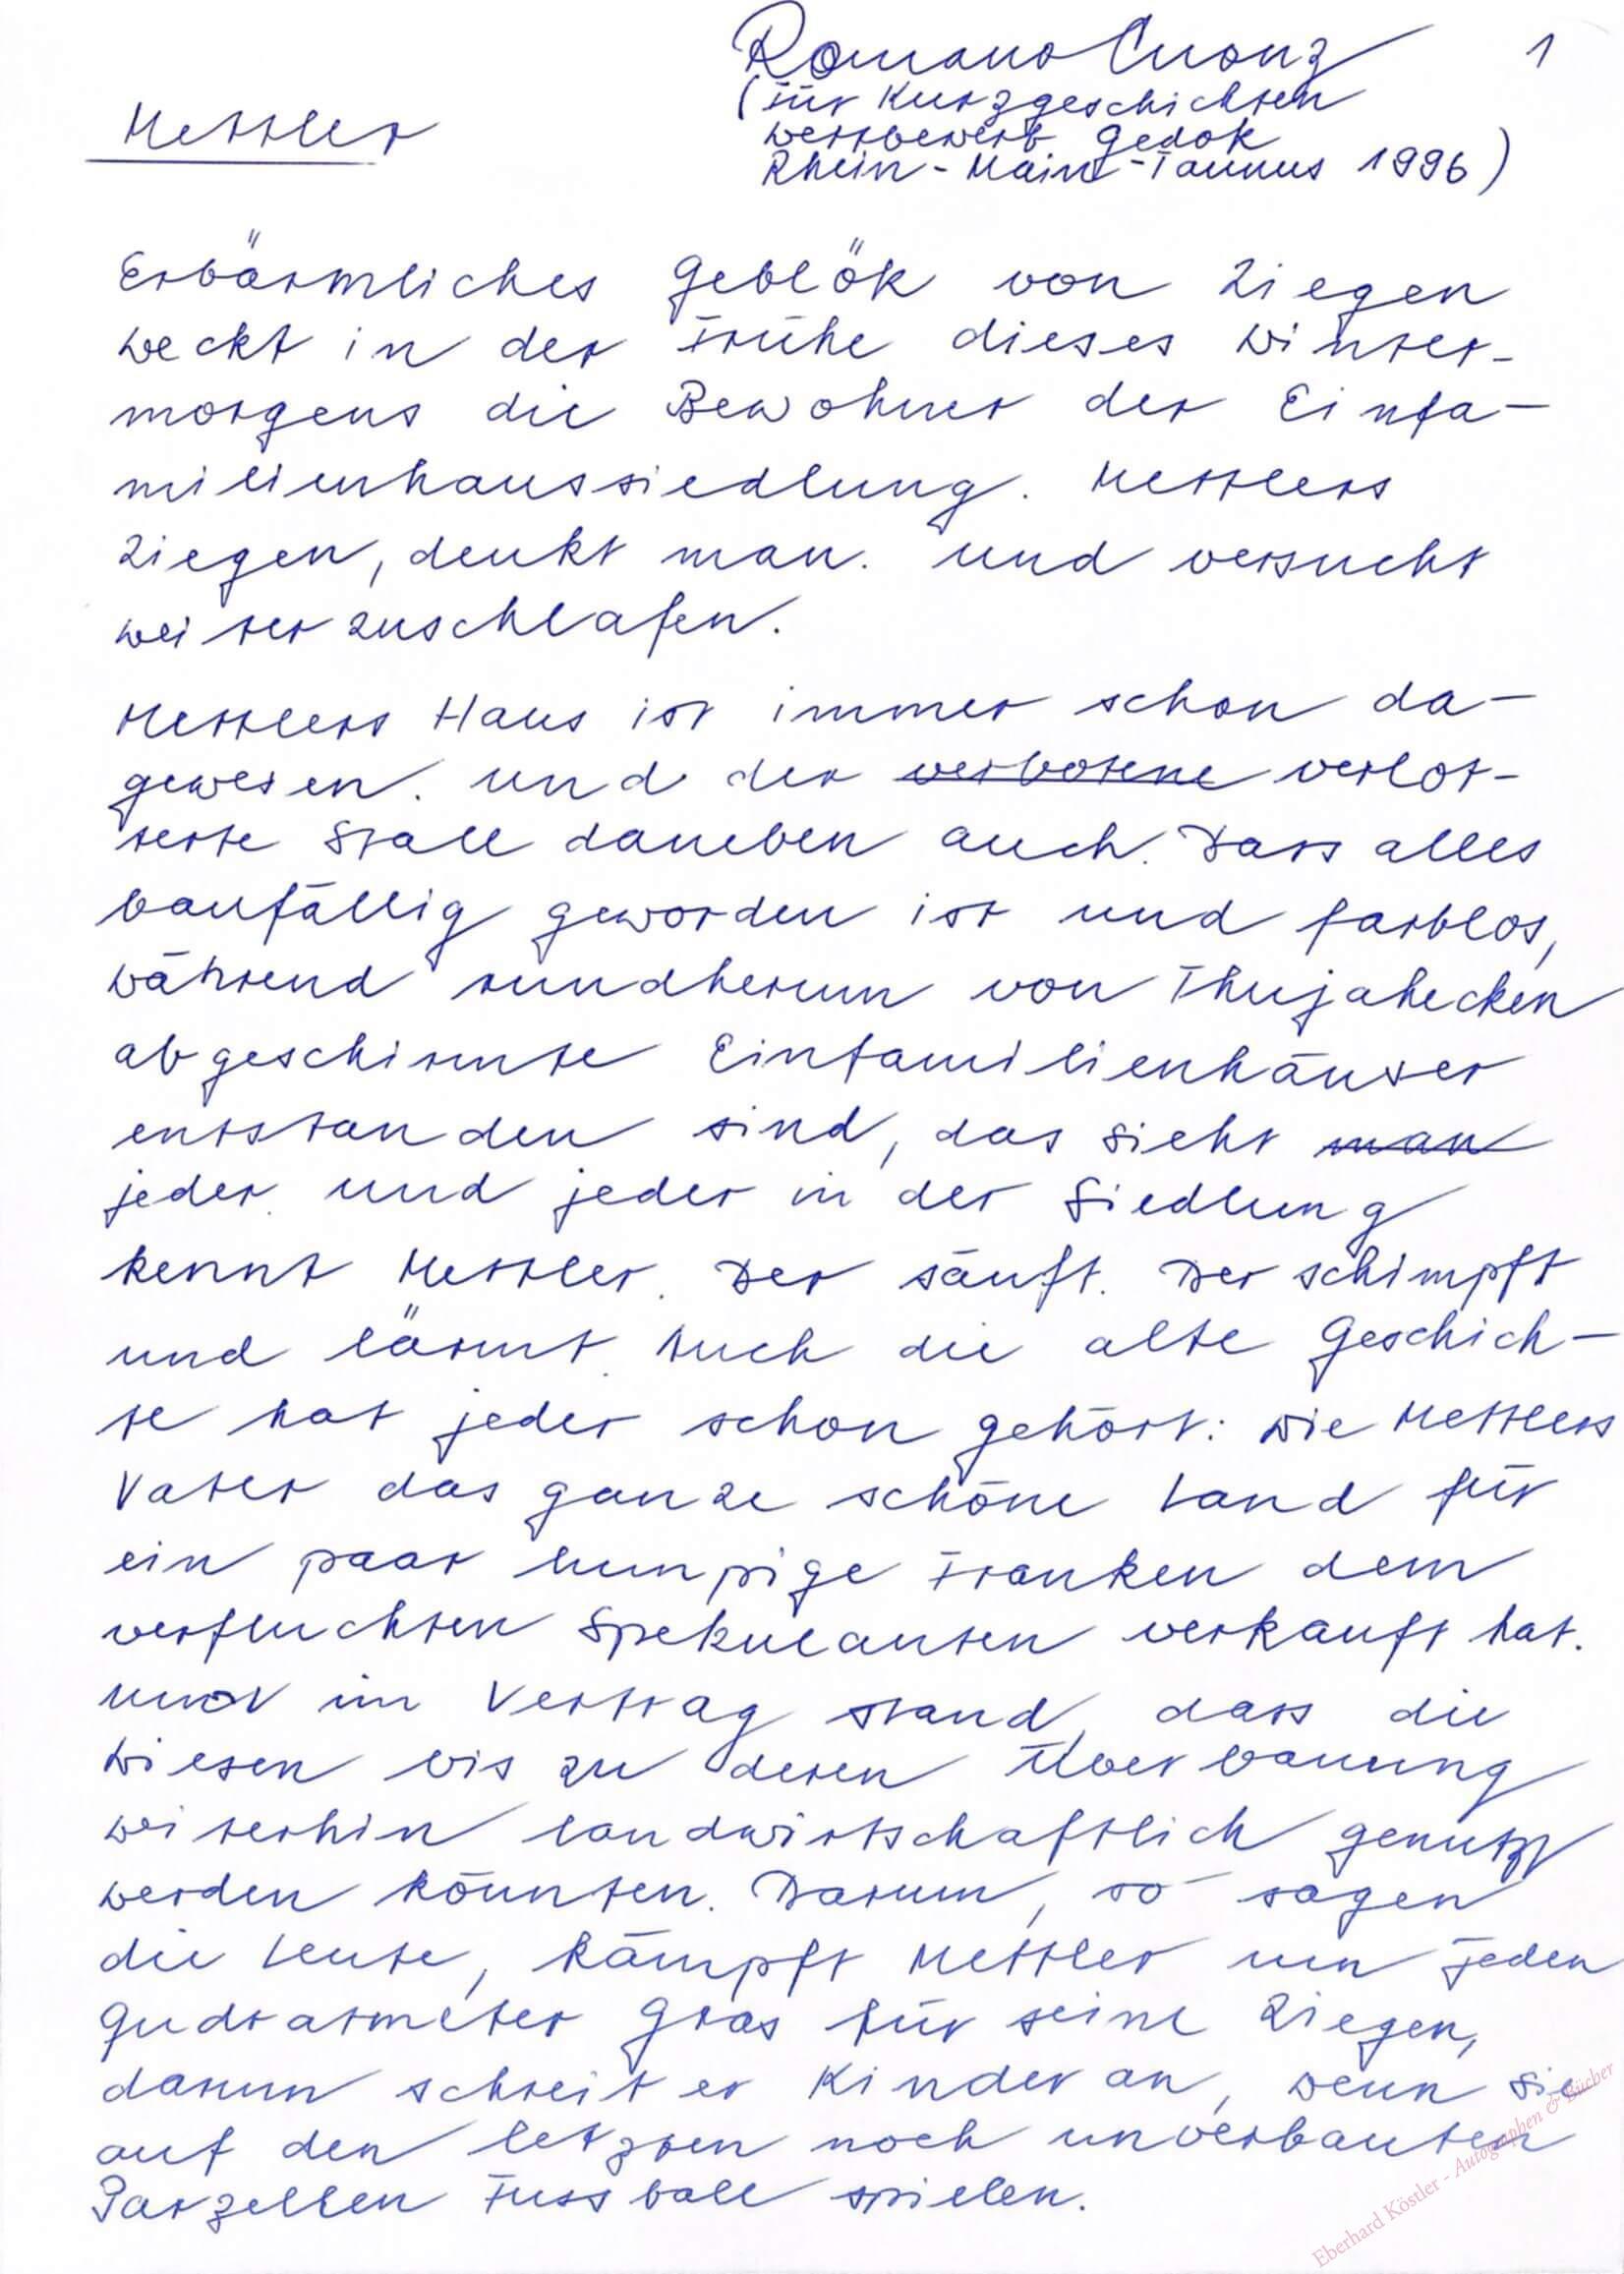 Romano Cuonz
1
(für Kurzgeschichten
Mettler
wettbewerb Gedok
Rhein-Main-Taunus 1996)
Erbärmliches Geblök von Ziegen
weckt in der Frühe dieses Winter-
morgens die Bewohner der Einfa-
milienhaussiedlung. Mettlers
Ziegen, denkt man. Und versucht
weiterzuschlafen.
Mettlers Haus ist immer schon da-
gewesen. Und der verbotene verlot-
terte Stall daneben auch. Dass alles
baufällig geworden ist und farblos,
während rundherum von Thujahecken
abgeschirmte Einfamilienhäuser
entstanden sind, das sieht man
jeder. Und jeder in der Siedlung
kennt Mettler. Der säuft. Der schimpft
und lärmt. Auch die alte Geschich-
te hat jeder schon gehört: Wie Mettlers
Vater das ganze schöne Land für
ein paar lumpige Franken dem
verfluchten Spekulanten verkauft hat.
Und im Vertrag stand, dass die
Wiesen bis zu deren Überbauung
weiterhin landwirtschaftlich genutzt
werden könnten. Darum, so sagen
die Leute, kämpft Mettler um jeden
Qudratmeter Gras für seine Ziegen,
darum schreit er Kinder an, wenn sie
auf den letzten noch unverbauten
Parzellen Fussball spielen.
Eberhard Köstler - Autographen & Bücher